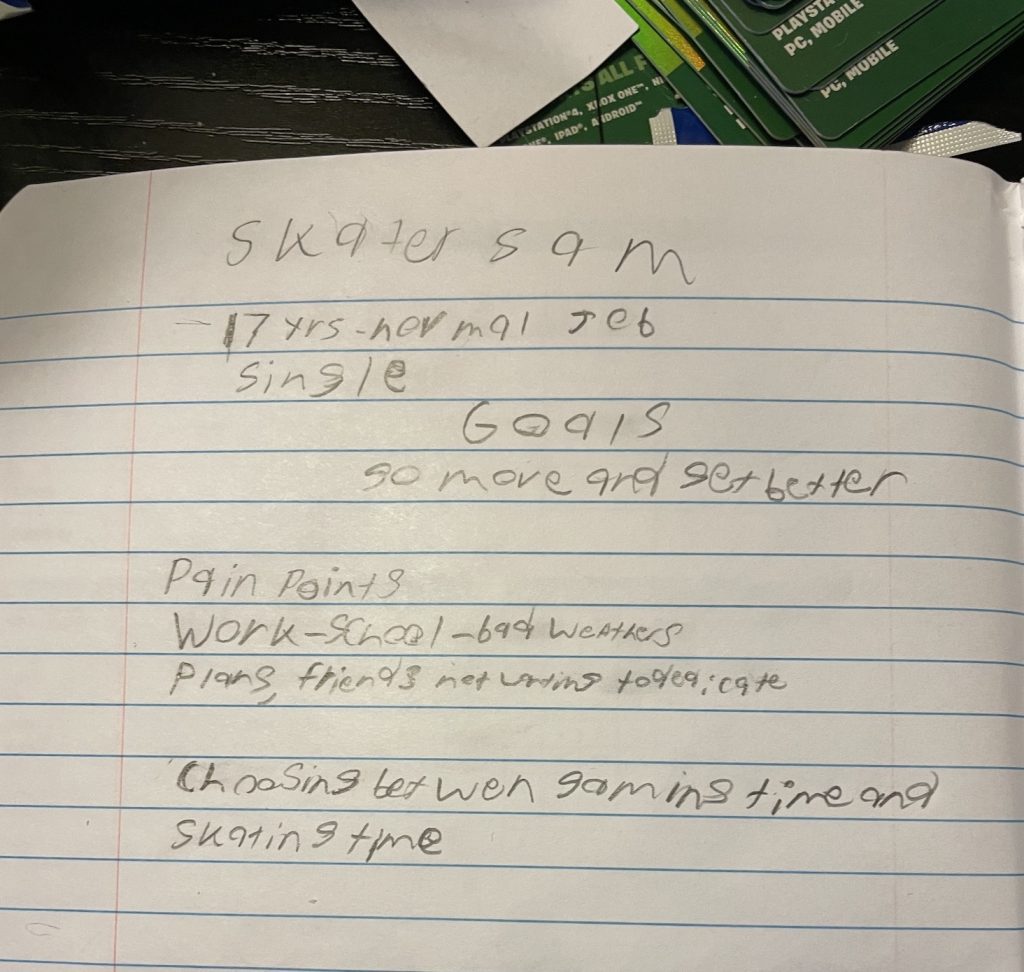 PLAYSTA
PC, MOBILE
PC, MOBILE
S ALL F
AYSTATION®4, XBOX ONE™, NI
NE®, IPAD®, ANDROID™
Skater sam
- 17 yrs - normal Job
single
Goals
go more and get better
Pain Points
Work - School - bad weathers
Plans, friends not wanting to dedicate
Choosing betwen gaming time and
skating time